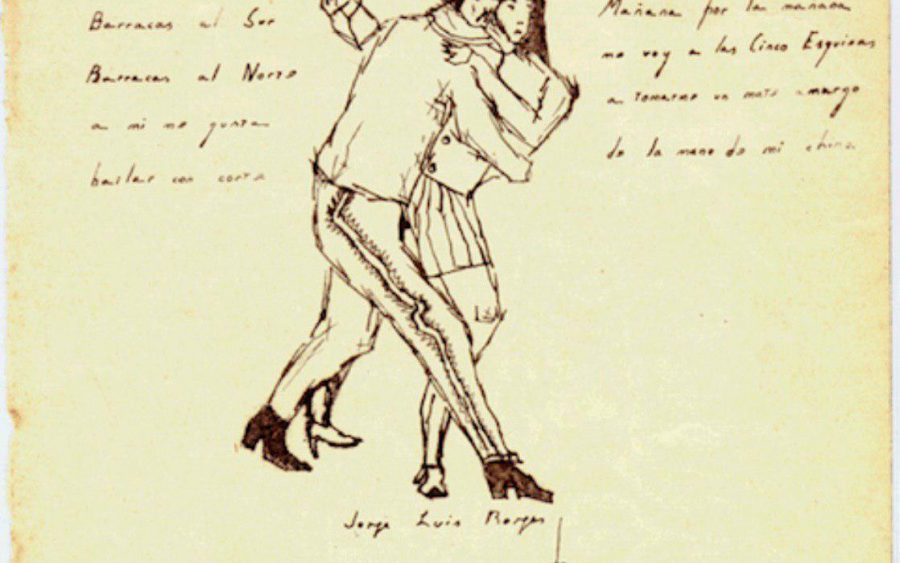 Barracas al Sur
Barracas al Norte
a mi me gusta
bailar con corte
Mañana por la manana
me voy a las Cinco Esquinas
a tomarme un mate amargo
de la mano de mi china
Jorge Luis Borges